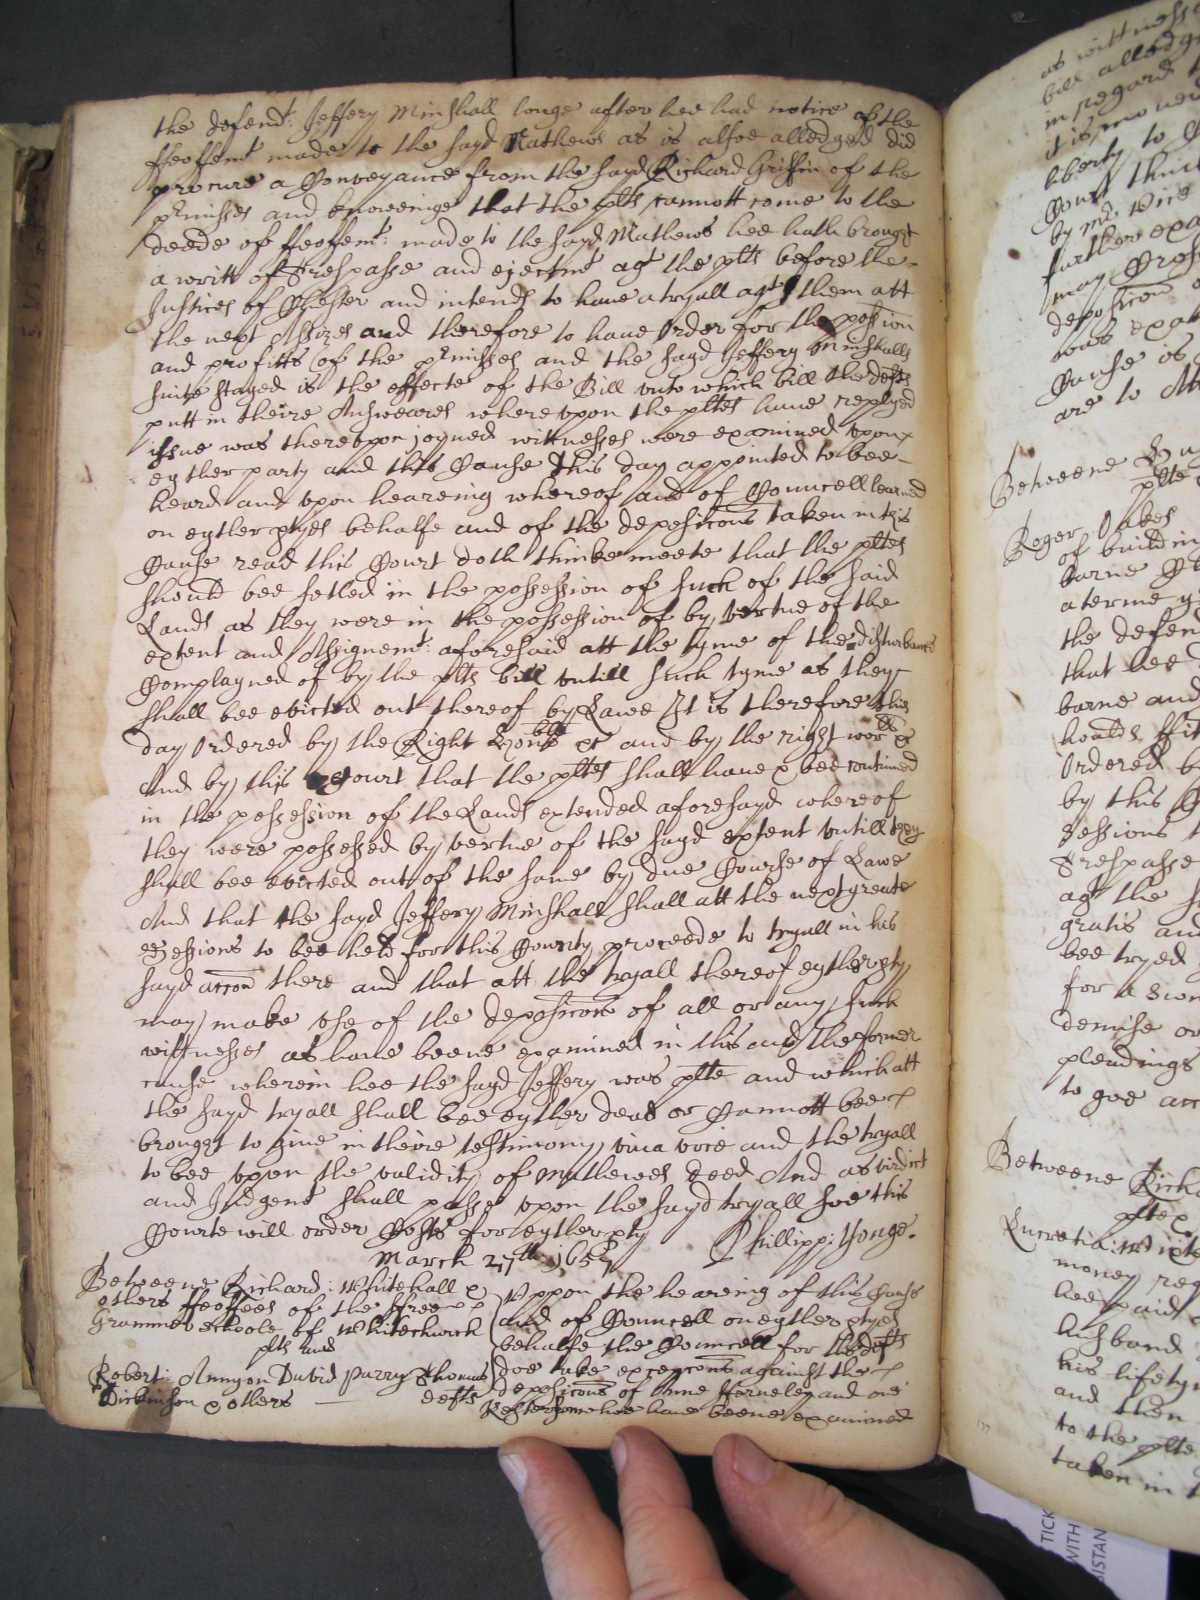 the defend^t: Jeffery Minshall longe after hee had notice of the
ffeoffem^t made to the sayd Mathewes as is alsoe alledged did
procure a Conveyance from the sayd Richard Griffin of the
p^rmisses and knoweinge that the plts cannott come to the
deede of ffeoffem^t: made to the sayd Mathewes hee hath brought
a writt of Trespasse and ejectm^t ag^t the plts before the
Justices of Chester and intends to have a tryall ag^t them att
the next Assizes and therefore to have Order for the possion
and profitts of the p^rmisses and the sayd Jeffery Minshalls
suite stayed is the effecte of the Bill unto which bill the defts
putt in theire Answeares whereupon the pltes have replyed
issue was thereupon joyned wittnesses were examined upon
eyther party and this Cause this day appointed to bee
heard and upon heareing whereof and of Councell learned
on eyther ptyes behalfe and of the deposicons taken in this
Cause read this Court doth thinke meete that the pltes
should bee setled in the possession of such of the said
Lands as they were in the possession of by vertue of the
extent and Assignem^t: aforesaid att the tyme of the disturbance
Complayned of by the plts bill untill such tyme as they
shall bee evicted out thereof by Lawe It is therefore this
day Ordered by the Right Hono^ble &c and by the right wor^ll &c
And by this Court that the pltes shall have & bee continued
in the possession of the Lands extended aforesayd whereof
they were possessed by vertue of the sayd extent untill they
shall bee evicted out of the same by due Course of Lawe
And that the sayd Jeffery Minshall shall att the next greate
Sessions to bee held for this County proceede to tryall in his
sayd accon there and that att the tryall thereof eyther pty
may make use of the deposicons of all or any such
wittnesses as have beene examined in this and the former
cause wherein hee the sayd Jeffery was plte and which att
the sayd tryall shall bee eyther dead or Cannott bee
brought to give in theire testimony viva voce and the tryall
to bee upon the validity of Mathewes deed And as virdict
and Judgem^t shall passe upon the sayd tryall soe this
Courte will order Costs for eyther pty Phillipp: Yonge.
March 27^th 1655
Betweene Richard: Whitehall & Uppon the heareing of this Cause
others ffeoffees of the ffree and of Councell on eyther ptyes
Grammer Schoole of Whitchurch behalfe the Councell for the defts
plts and doe take excepcons against the
Robert: Annyon David Parry Thomas deposicons of Anne fforneley and one
Dickinson & others defts who have beene examined
as wittness
bill alledge
in regard
it is moved
liberty to
Court think
by m^r
further exa
may Cross
deposicon
was exam
Cause is
are to
Betweene
plte
Roger Oakes
of buildin
barne
a terme
the defen
that hee
barne and
Ordered b
by this
Sessions
Trespasse
ag^t the
gratis and
bee tryed
for a
demise or
pleadings
to goe acc
Betweene Rich
Lucretia:
money
bee paid
husband
his lifetyme
and then
to the plte
taken in
177
TICK
WITH
ISTAN